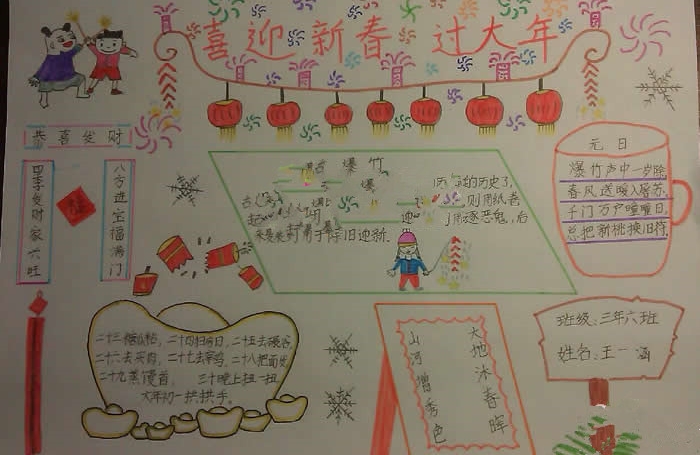 喜迎新春 过大年
恭喜发财
四季发财家兴旺
八方进宝福满门
爆竹
的历史了,
则用纸卷
用逐恶鬼,后
来是来到用于除旧迎新.
元日
爆竹声中一岁除
春风送暖入屠苏
千门万户曈曈日,
总把新桃换旧符.
二十三糖瓜粘, 二十四扫日, 二十五
二十六去买肉, 二十七去宰鸡, 二十八把面发
二十九蒸馒首, 三十晚上扭一扭
大年初一拱拱手.
大地沐春晖
山河增秀色
班级:三年六班
姓名:王一涵